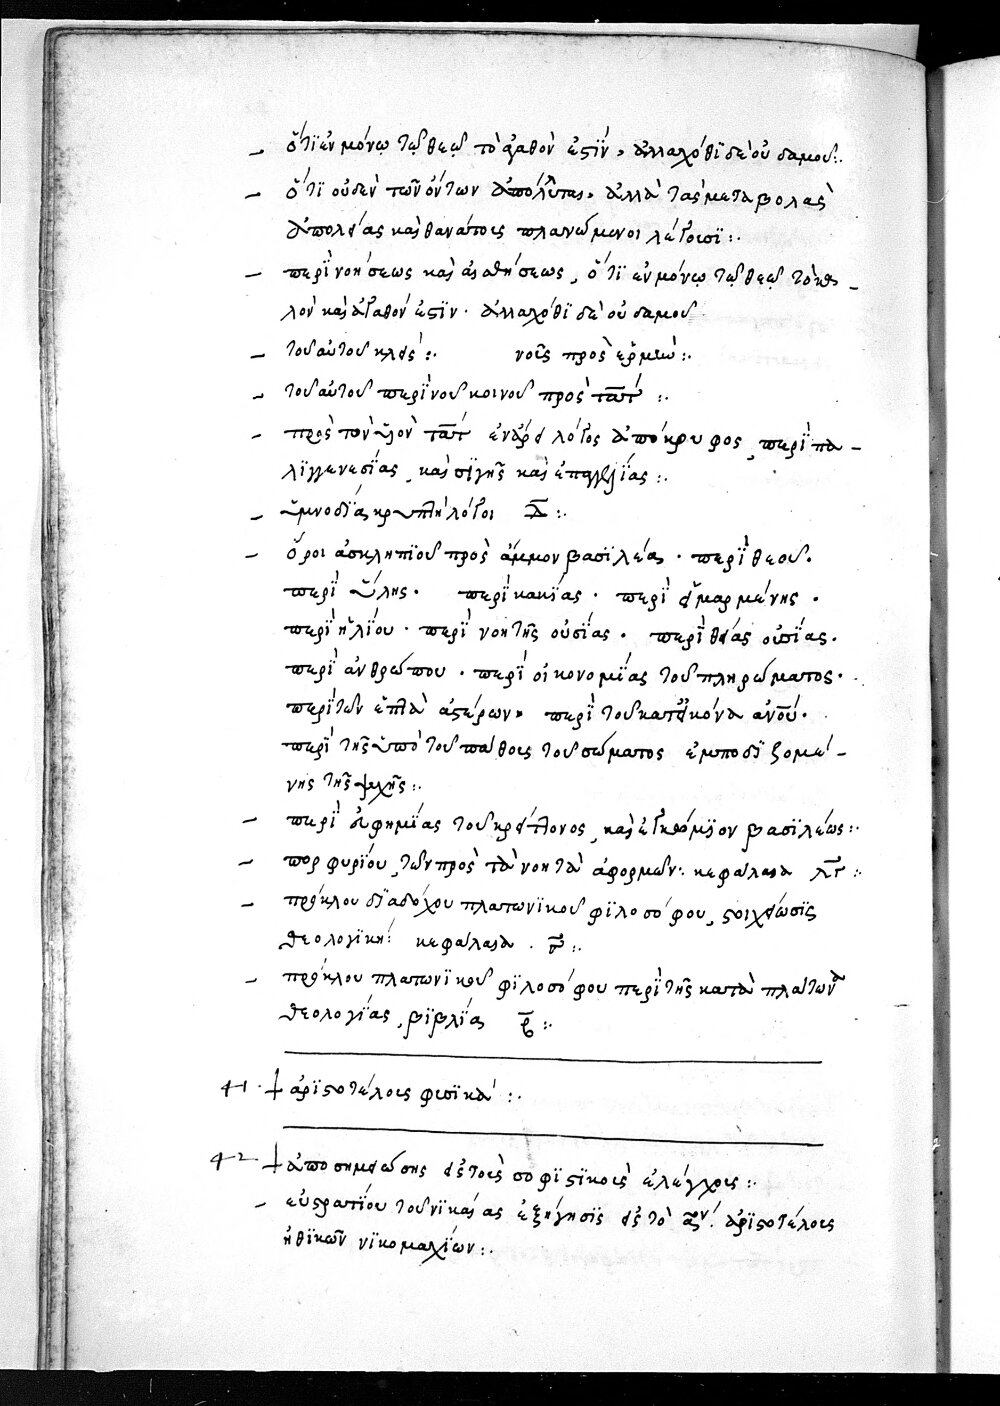 – ὅτι ἐν μόνῳ τῷ θεῷ τὸ ἀγαθόν ἐστιν, ἀλλαχόθι δὲ οὐδαμοῦ:.
– ὅτι οὐδὲν τῶν ὄντων ἀπόλλυται, ἀλλὰ τὰς μεταβολὰς
ἀπολείας καὶ θανάτους πλανώμενοι λέγουσι:.
– περὶ νοήσεως καὶ αἰσθήσεως, ὅτι ἐν μόνῳ τῷ θεῷ τὸ κα–
λὸν καὶ ἀγαθόν ἐστιν· ἀλλαχόθι δὲ οὐδαμοῦ
– τοῦ αὐτοῦ κλείς:. νοῦς πρὸς ἑρμῆν:.
– τοῦ αὐτοῦ περὶ νοῦ κοινοῦ πρὸς τάτ:.
– πρὸς τὸν υἱὸν τάτ ἐν ὄρει λόγος ἀπόκρυφος, περὶ πα–
λιγγενεσίας, καὶ σιγῆς καὶ ἐπαγγελίας:.
– ὑμνοδία κρυπτὴ λόγοι δ:.
– ὅροι ἀσκληπιοῦ πρὸς ἄμμον βασιλέα· περὶ θεοῦ·
περὶ ὕλης· περὶ κακίας· περὶ εἱμαρμένης·
περὶ ἡλίου· περὶ νοητῆς οὐσίας· περὶ θείας οὐσίας·
περὶ ἀνθρώπου· περὶ οἰκονομίας τοῦ πληρώματος·
περὶ τῶν ἑπτὰ ἀστέρων, περὶ τοῦ κατ' εἰκόνα ἀνου·
περὶ τῆς ὑπὸ τοῦ πάθους τοῦ σώματος ἐμποδιζομέ–
νης τῆς ψυχῆς:.
– περὶ εὐφημίας τοῦ κρείττονος, καὶ ἐγκώμιον βασιλέως:.
– πορφυρίου, τῶν πρὸς τὰ νοητὰ ἀφορμῶν: κεφάλαια λγ:.
– πρόκλου διαδόχου πλατωνικοῦ φιλοσόφου, στοιχείωσις
θεολογική: κεφάλαια.
– πρόκλου πλατωνικοῦ φιλοσόφου περὶ τῆς κατὰ πλάτωνα
θεολογίας, βιβλία ϛ:.
41. † ἀριστοτέλους φυσικά:.
42 † ἀποσημειώσης εἰς τοὺς σοφιστικοὺς ἐλέγχους:.
– εὐστρατίου τοῦ νικαίας ἐξήγησις εἰς τὸ αον: ἀριστοτέλους
ἠθικῶν νικομαχίων:.